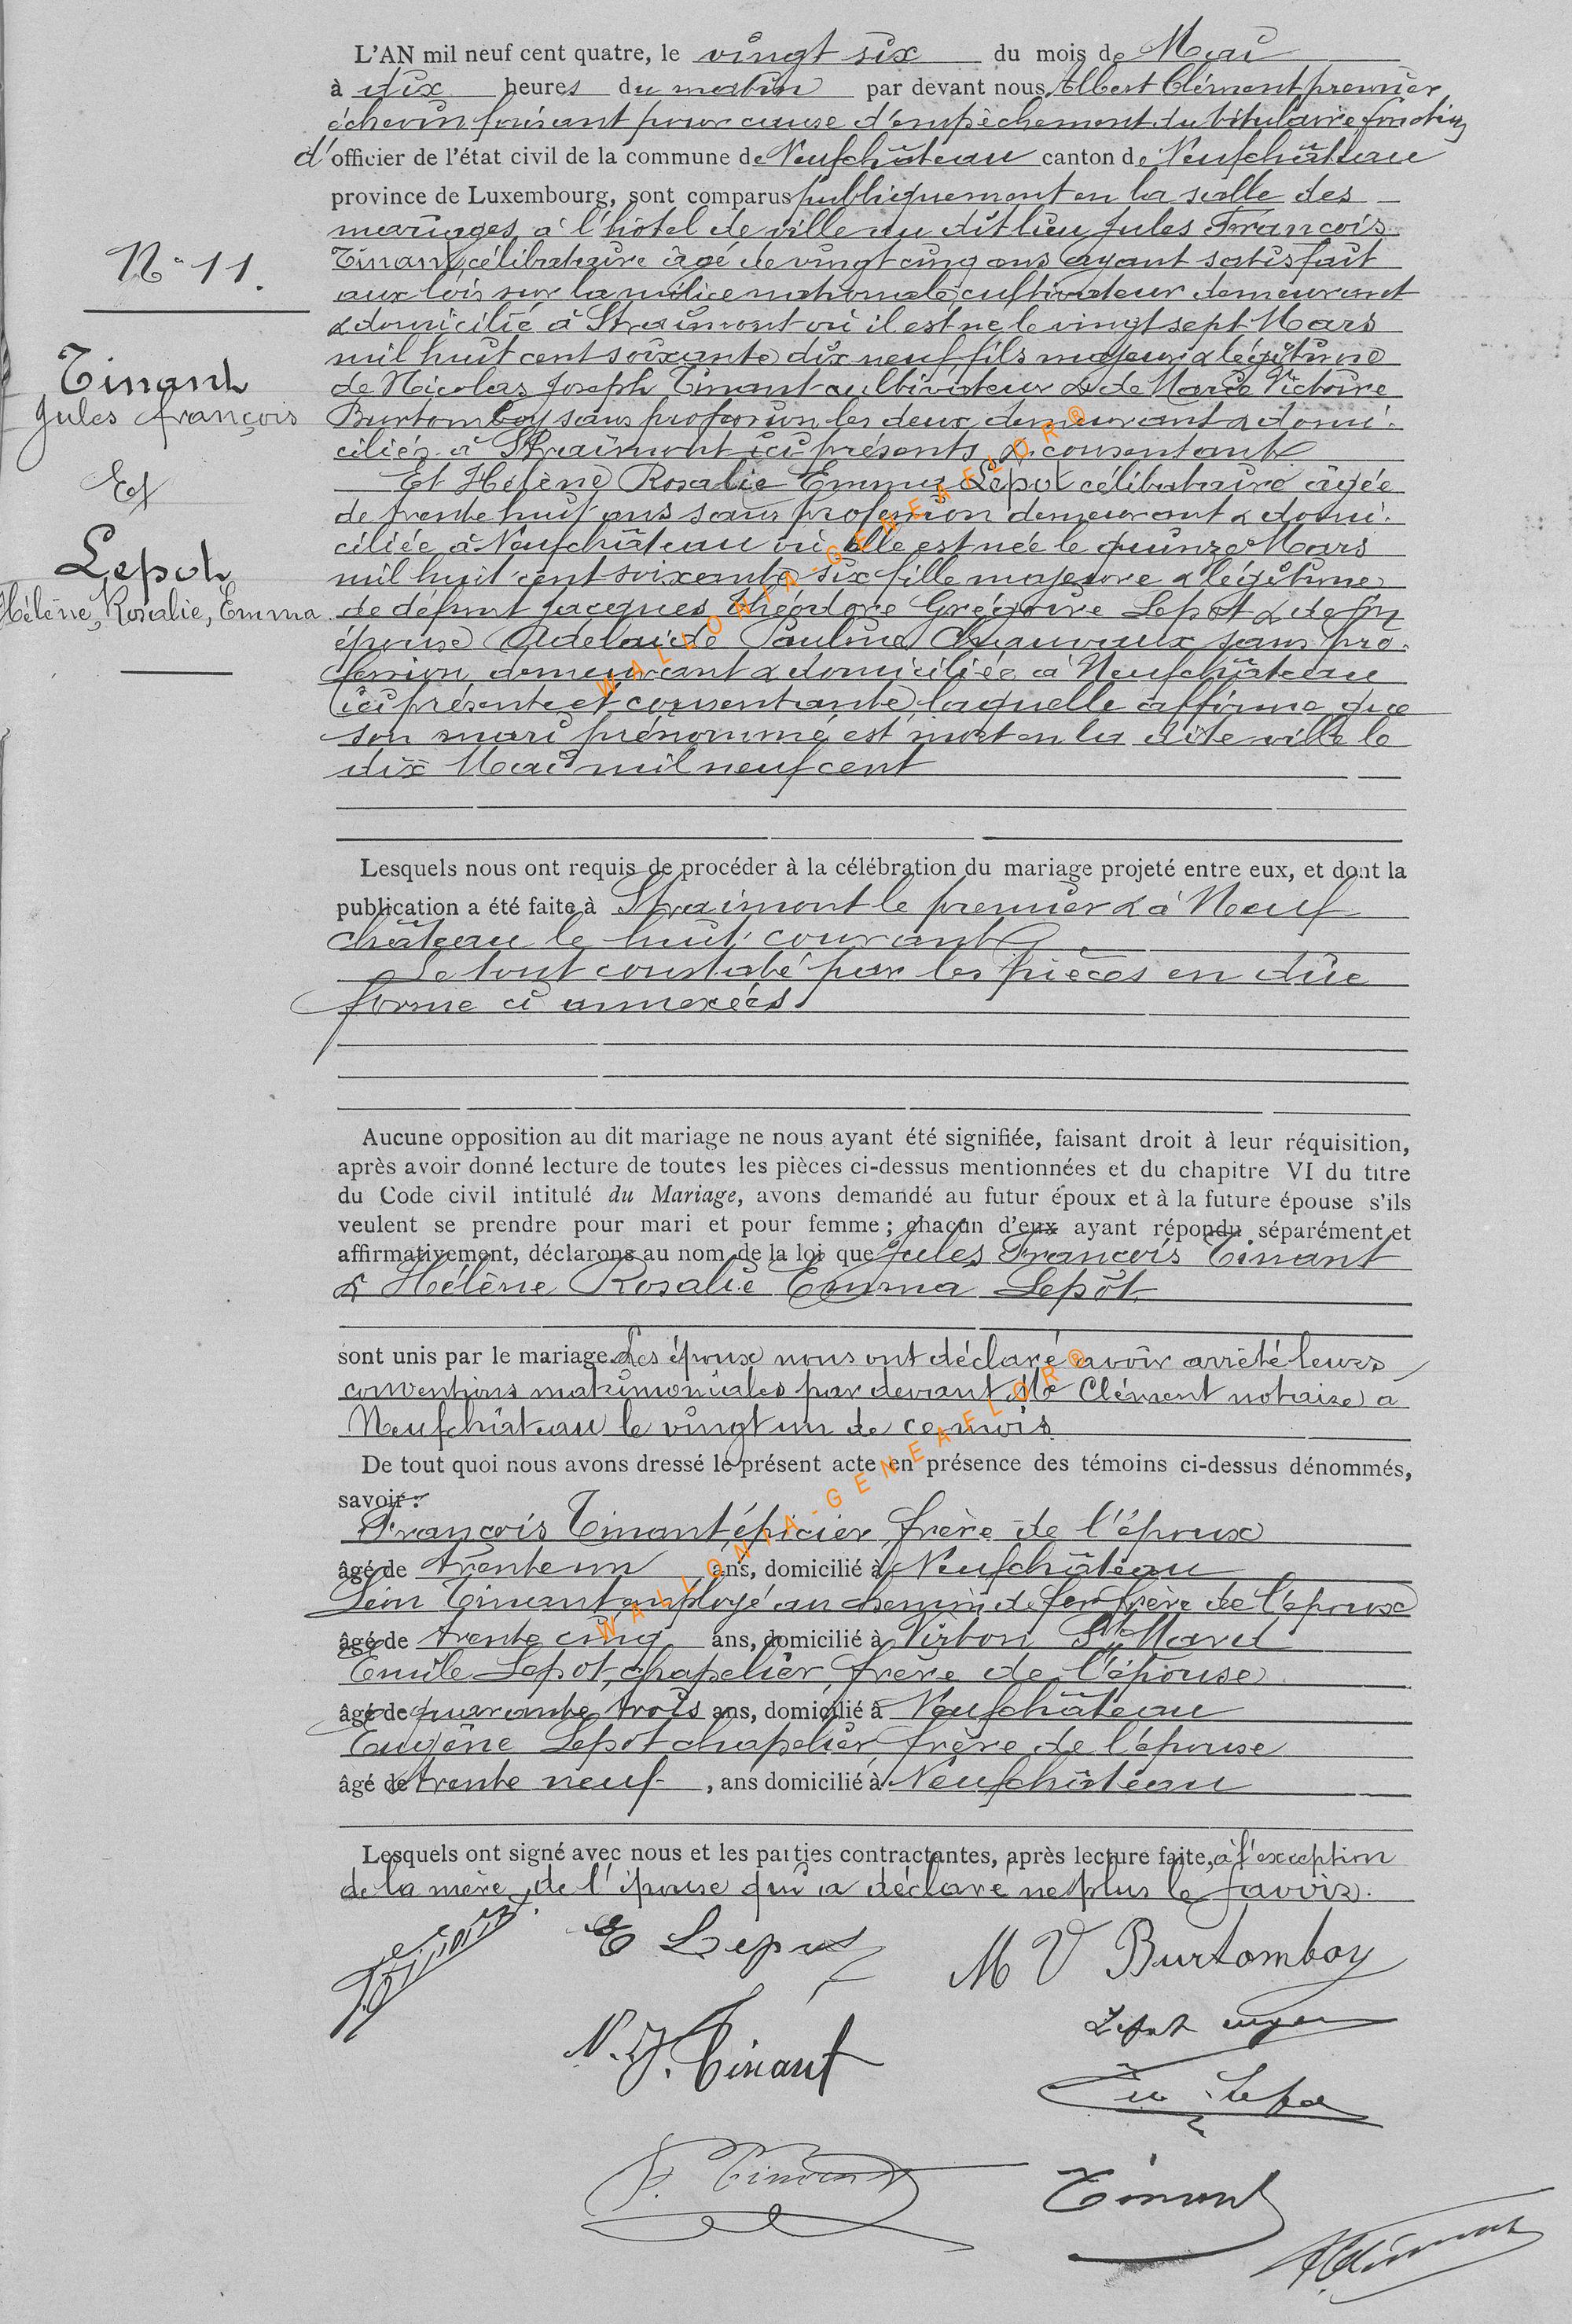 L'AN mil neuf cent quatre, le vingt six du mois de Mai
à dix heures du matin par devant nous Albert Clément premier
échevin faisant pour cause d'empêchement du titulaire fonction
d'officier de l'état civil de la commune de Neufchâteau canton de Neufchâteau
province de Luxembourg, sont comparus publiquement en la salle des
mariages à l'hôtel de ville au dit lieu Jules François
N° 11.
Tinant célibataire âgé de vingt cinq ans ayant satisfait
aux lois sur la milice nationale, cultivateur demeurant
& domicilié à Straimont où il est né le vingt sept Mars
mil huit cent soixante dix neuf fils majeur & légitime
Tinant
de Nicolas Joseph Tinant cultivateur & de Marie Victoire
Jules françois
Burtomboy sans profession les deux demeurant & domi-
ciliés à Straimont ici présents & consentants
Et
Et Hélène Rosalie Emma Lepot célibataire âgée
de trente huit ans sans profession demeurant & domi-
ciliée à Neufchâteau où elle est née le quinze Mars
Lepot
mil huit cent soixante six fille majeure & légitime
Hélène, Rosalie, Emma.
de défunt Jacques Théodore Grégoire Lepot & de son
épouse Adelaïde Pauline Chauvaux sans pro-
fession, demeurant & domiciliée à Neufchâteau
ici présente et consentante laquelle affirme que
son mari prénommé est mort en la dite ville le
dix Mai mil neuf cent
WALLONIA-GENEAFLOR®
Lesquels nous ont requis de procéder à la célébration du mariage projeté entre eux, et dont la
publication a été faite à Straimont le premier & à Neuf
château le huit courant.
Le tout constaté par les pièces en dûe
forme ci annexées.
Aucune opposition au dit mariage ne nous ayant été signifiée, faisant droit à leur réquisition,
après avoir donné lecture de toutes les pièces ci-dessus mentionnées et du chapitre VI du titre
du Code civil intitulé du Mariage, avons demandé au futur époux et à la future épouse s'ils
veulent se prendre pour mari et pour femme ; chacun d'eux ayant répondu séparément et
affirmativement, déclarons au nom de la loi que Jules François Tinant
& Hélène Rosalie Emma Lepot
sont unis par le mariage. Les époux nous ont déclaré avoir arrêté leurs
conventions matrimoniales par devant Me Clément notaire à
Neufchâteau le vingt un de ce mois
De tout quoi nous avons dressé le présent acte en présence des témoins ci-dessus dénommés,
savoir :
François Tinant épicier frère de l'époux
âgé de trente un ans, domicilié à Neufchâteau
Léon Tinant employé au chemin de fer frère de l'époux
âgé de trente cinq ans, domicilié à Virton St Mard
Emile Lepot, chapelier, frère de l'épouse
âgé de quarante trois ans, domicilié à Neufchâteau
Eugène Lepot chapelier frère de l'épouse
âgé de trente neuf, ans domicilié à Neufchâteau
WALLONIA-GENEAFLOR®
Lesquels ont signé avec nous et les parties contractantes, après lecture faite, à l'exception
de la mère de l'épouse qui a déclaré ne plus le savoir.
E Lepot
M V Burtomboy
N. J. Tinant
Lepot
Em Lepot
F. Tinant
Tinant
A Clément